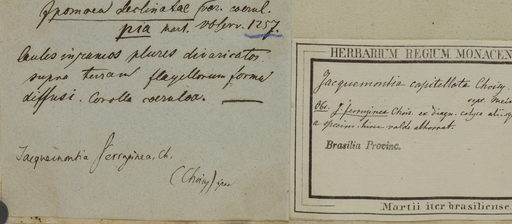 Ipomoea declinata var. coerul-
pia mart. observ. 1257.
Caules ex plures divaricatos
supra terram flagellorum forma
diffusi. Corolla coerulea. —
Jacquemontia ferruginea, Ch.
(Choisy)
HERBARIUM REGIUM MONACEN
Jacquemontia capitellata Choisy.
Obs. J. ferruginea Chois. ex diagn. calyce
a specim. hinc valde abhorret.
Brasilia Provinc.
Martii iter brasiliense